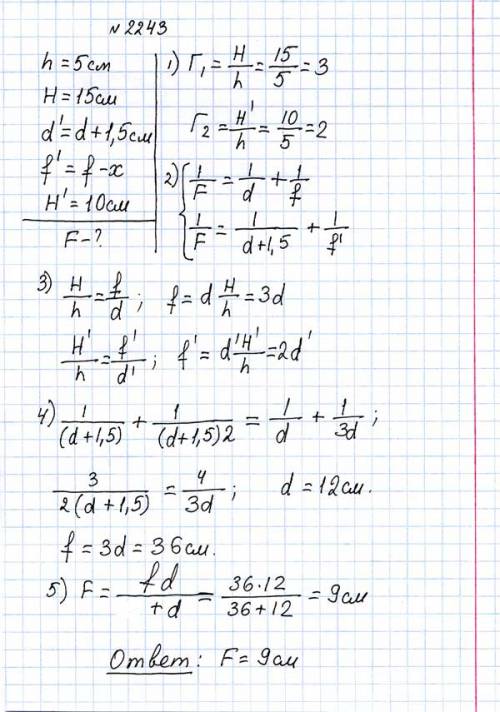 №2243
h = 5 см
H = 15 см
d' = d + 1,5 см
f' = f - x
H' = 10 см
F - ?
1) Г₁ = H/h = 15/5 = 3
Г₂ = H'/h = 10/5 = 2
2) { 1/F = 1/d + 1/f
1/F = 1/(d+1,5) + 1/f'
3) H/h = f/d ; f = d H/h = 3d
H'/h = f'/d' ; f' = d'H'/h = 2d'
4) 1/(d+1,5) + 1/((d+1,5)2) = 1/d + 1/3d ;
3/(2(d+1,5)) = 4/3d ; d = 12 см.
f = 3d = 36 см.
5) F = fd/(+d) = 36·12/(36+12) = 9 см
Ответ: F = 9 см